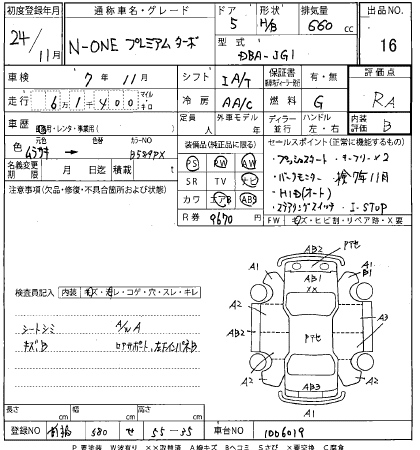 初度登録年月 通称車名・グレード ドア 形状 排気量 出品NO.
24/11月 N-ONE プレミアム ターボ 5 H/B 660cc 16
型式 DBA-JG1
車検 7年11月 シフト IA/T 保証書 有・無 評価点
走行 6万1千400 マイル キロ 冷房 AA/C 燃料 G RA
車歴 自家用・レンタ・事業用( ) 定員 人 外車モデル 年 ディーラー 並行 ハンドル 左・右 内装評価 B
色 元色 ムラサキ → カラーNO B589PX
装備品(純正品に限る) セールスポイント(正常に機能するもの)
名義変更期限 月 日 積載 t
PS PW AW ・プッシュスタート ・キーフリー×2
注意事項(欠品・修復・不具合箇所および状態) SR TV ナビ ・パークモニター 検7年11月
カワ エアB ABS ・HID(オート)
R券 9670 ・ステアリングスイッチ ・I-STOP
FW キズ・ヒビ割・リペア跡・X要
検査員記入 内装 キズ・汚レ・コゲ・穴・スレ・キレ
シートシミ A/W A
キズB ロアサポート、左右インパネB
AB2 Pサビ
A1 AB1 A1 B1
××
A2 A2
AB2 Pサビ A3
A2 A2
AB3
A1
長さ cm 幅 cm 高さ cm
登録NO 前橋 580 せ 55-35 車台NO 1006019
P 要塗装 W波有り ××取替済 A線キズ Bヘコミ Sさび ×要交換 C腐食